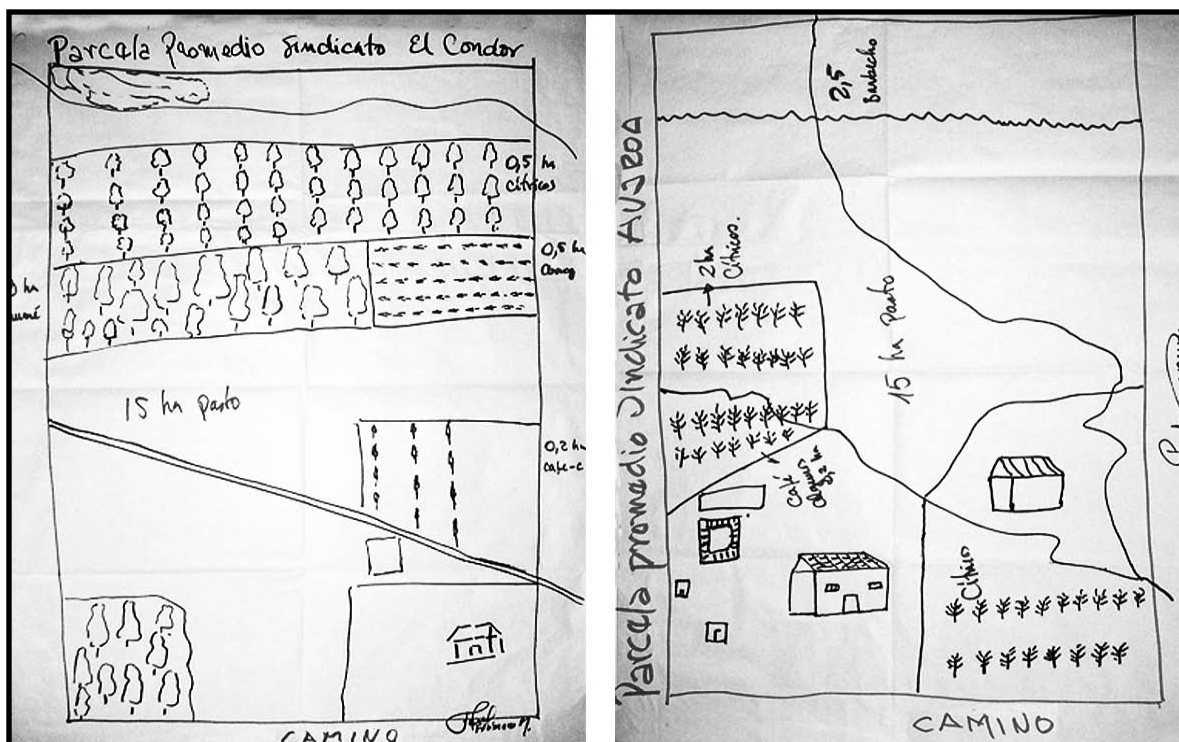 Parcela Promedio Sindicato El Condor
0,5 ha
Cítricos
0,5 ha
ha
15 ha pasto
0,2 ha
cafe-c
CAMINO
Parcela promedio Sindicato AVAROA
2,5
Barbecho
2 ha
Cítricos.
15 ha Pasto
Café
0,2 ha
Cítrico
CAMINO